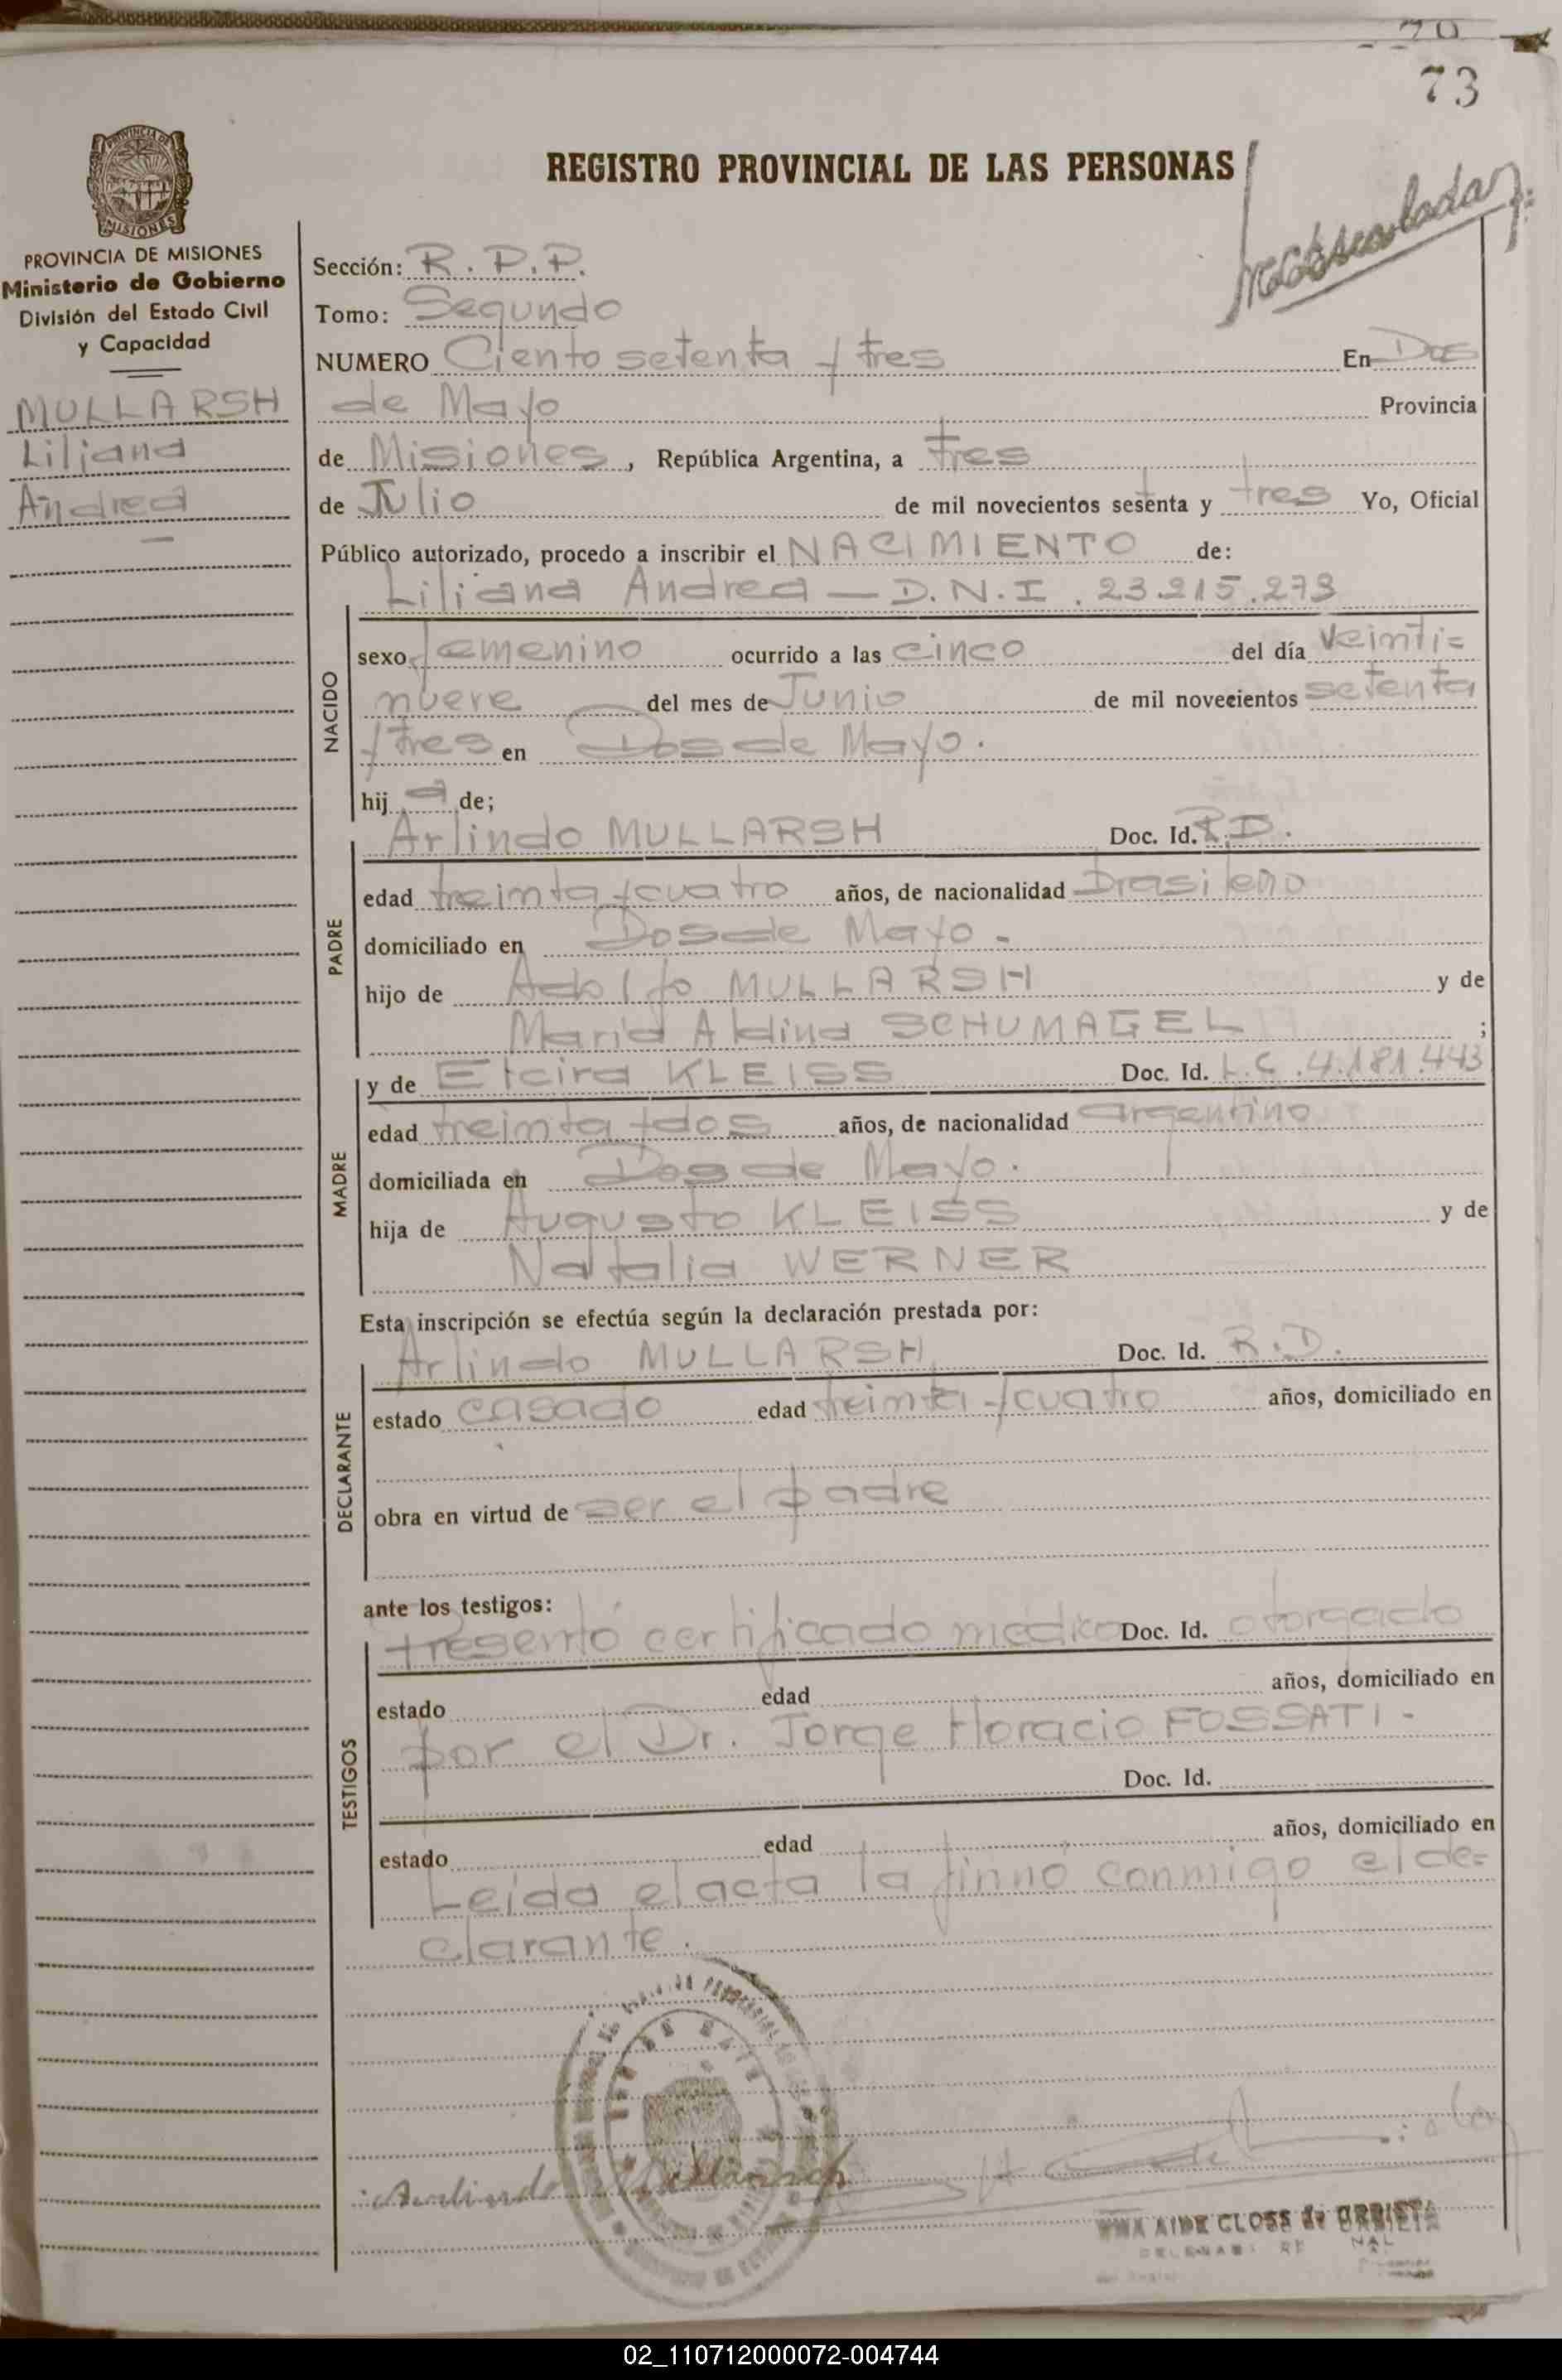 73
REGISTRO PROVINCIAL DE LAS PERSONAS
PROVINCIA DE
MISIONES
PROVINCIA DE MISIONES
Ministerio de Gobierno
División del Estado Civil
y Capacidad
MULLARSH
Liliana
Andrea
Sección: R.P.P.
Tomo: Segundo
NUMERO Ciento setenta y tres En Dos
de Mayo Provincia
de Misiones, República Argentina, a tres
de Julio de mil novecientos sesenta y tres Yo, Oficial
Público autorizado, procedo a inscribir el NACIMIENTO de:
Liliana Andrea — D.N.I. 23.215.273
NACIDO
sexo femenino ocurrido a las cinco del día veinti=
nueve del mes de Junio de mil novecientos setenta
y tres en Dos de Mayo.
hij a de;
PADRE
Arlindo MULLARSH Doc. Id. R.D.
edad treinta y cuatro años, de nacionalidad brasileño
domiciliado en Dos de Mayo -
hijo de Adolfo MULLARSH y de
Maria Aldina SCHUMAGEL ;
MADRE
y de Elcira KLEISS Doc. Id. L.C. 4.181.443
edad treinta y dos años, de nacionalidad argentino
domiciliada en Dos de Mayo.
hija de Augusto KLEISS y de
Natalia WERNER
Esta inscripción se efectúa según la declaración prestada por:
DECLARANTE
Arlindo MULLARSH Doc. Id. R.D.
estado casado edad treinta y cuatro años, domiciliado en
obra en virtud de ser el padre
ante los testigos:
TESTIGOS
Presentó certificado médico Doc. Id. otorgado
estado edad años, domiciliado en
por el Dr. Jorge Horacio FOSSATI -
Doc. Id.
estado edad años, domiciliado en
Leída el acta la firmó conmigo el de=
clarante.
Arlindo Mullarsch
AIDE CLOSS de
02_110712000072-004744